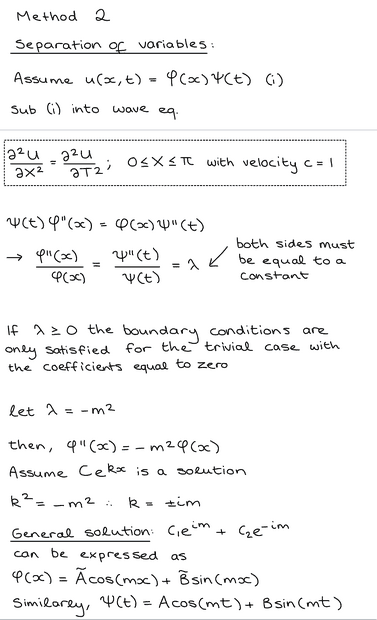 Method 2
Separation of variables:
Assume u(x,t) = φ(x)Ψ(t) (i)
Sub (i) into wave eq.
∂²U/∂X² = ∂²U/∂T² ; 0≤X≤π with velocity c = 1
Ψ(t)φ"(x) = φ(x)Ψ"(t)
→ φ"(x)/φ(x) = Ψ"(t)/Ψ(t) = λ ↙ both sides must be equal to a constant
If λ ≥ 0 the boundary conditions are
only satisfied for the trivial case with
the coefficients equal to zero
let λ = -m²
then, φ"(x) = -m²φ(x)
Assume Ce^kx is a solution
k² = -m² ∴ k = ±im
General solution: C₁e^im + C₂e^-im
can be expressed as
φ(x) = Ãcos(mx) + B̃sin(mx)
Similarly, Ψ(t) = Acos(mt) + Bsin(mt)